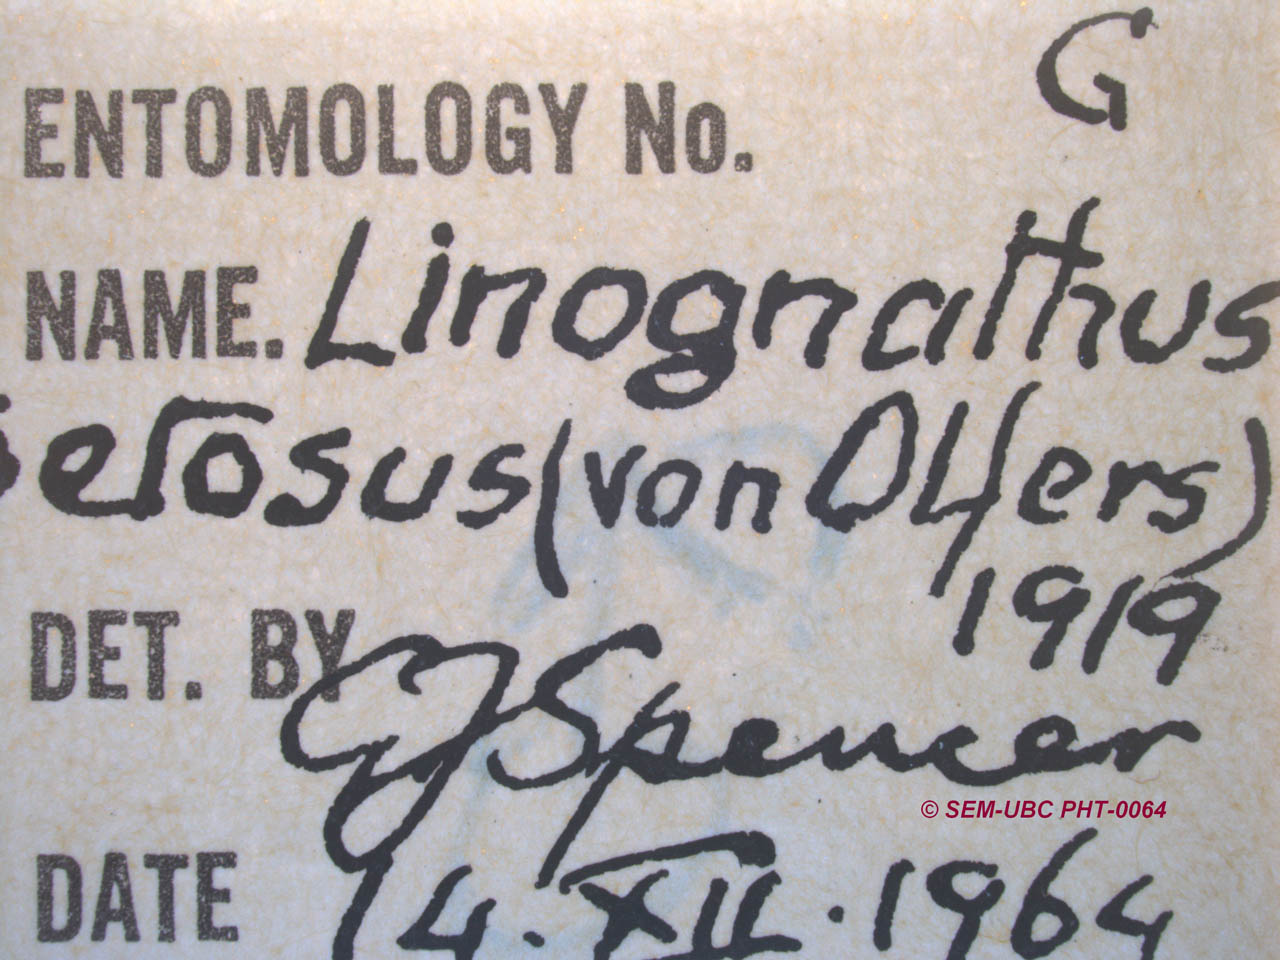 G
ENTOMOLOGY No.
NAME. Linognathus
setosus (von Olfers)
1919
DET. BY GJ Spencer
© SEM-UBC PHT-0064
DATE 14.XII.1964